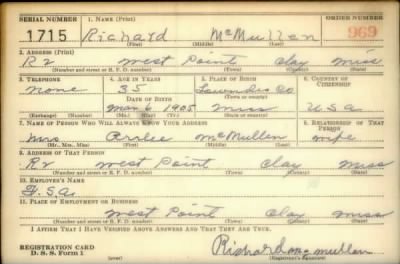 SERIAL NUMBER 1. NAME (Print) ORDER NUMBER
1715 Richard McMullen 969
(First) (Middle) (Last)
2. ADDRESS (Print)
R2 West Point Clay Miss
(Number and street or R. F. D. number) (Town) (County) (State)
3. TELEPHONE 4. AGE IN YEARS 5. PLACE OF BIRTH 6. COUNTRY OF CITIZENSHIP
None 35 Lowndes Co
DATE OF BIRTH
1905 Miss U.S.A
(Exchange) (Number) (Mo.) (Day) (Yr.) (State or country)
7. NAME OF PERSON WHO WILL ALWAYS KNOW YOUR ADDRESS 8. RELATIONSHIP OF THAT PERSON
Mrs McMullen wife
(Mr., Mrs., Miss) (First) (Middle) (Last)
9. ADDRESS OF THAT PERSON
R2 West Point Clay Miss
(Number and street or R. F. D. number) (Town) (County) (State)
10. EMPLOYER'S NAME
11. PLACE OF EMPLOYMENT OR BUSINESS
West Point Clay Miss
(Number and street or R. F. D. number) (Town) (County) (State)
I AFFIRM THAT I HAVE VERIFIED ABOVE ANSWERS AND THAT THEY ARE TRUE.
REGISTRATION CARD
D. S. S. Form 1 (over) Richard McMullen
(Registrant's signature)